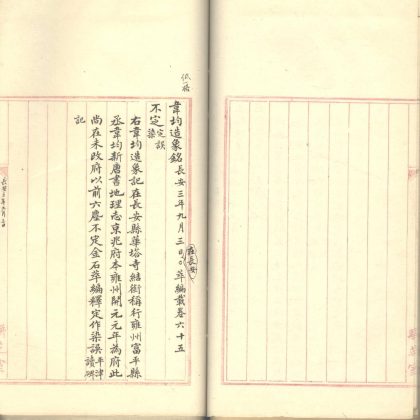 低一格
韋均造象銘長安三年九月三日。在長安 萃編載卷六十五
不定 定誤染
右韋均造象記在長安縣華塔寺結銜稱行雍州富平縣
丞韋均新唐書地理志京兆府本雍州開元元年為府此
尚在未改府以前六塵不定金石萃編釋定作染誤平津讀碑
記